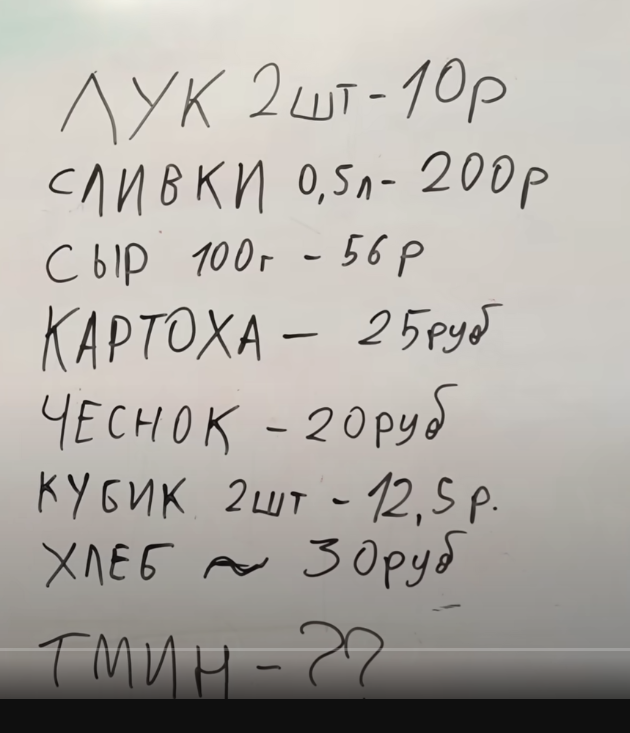 ЛУК 2шт - 10р
СЛИВКИ 0,5л - 200р
СЫР 100г - 56 р
КАРТОХА - 25руб
ЧЕСНОК - 20руб
КУБИК 2шт - 12,5 р.
ХЛЕБ ~ 30руб
ТМИН - ??